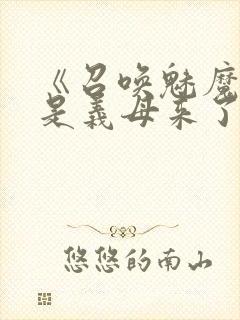 《召唤魅魔
是义母来了
悠悠的南山